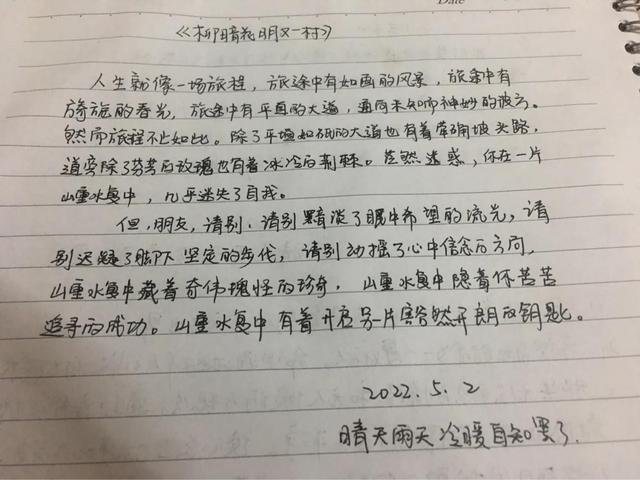 Date
《柳暗花明又一村》
人生就像一场旅程，旅途中有如画的风景，旅途中有
旖旎的春光，旅途中有平直的大道，通向未知而神妙的彼方。
然而旅程不止如此。除了平坦如砥的大道也有着荦确坡头路，
道旁除了芬芳的玫瑰也有着冰冷的荆棘。茫然迷惑，你在一片
山重水复中，几乎迷失了自我。
但，朋友，请别，请别黯淡了眼中希望的流光，请
别迟疑了脚下坚定的步伐，请别动摇了心中信念的方向，
山重水复中藏着奇伟瑰怪的珍奇，山重水复中隐着你苦苦
追寻的成功。山重水复中有着开启另一片豁然开朗的钥匙。
2022.5.2
晴天雨天冷暖自知罢了.